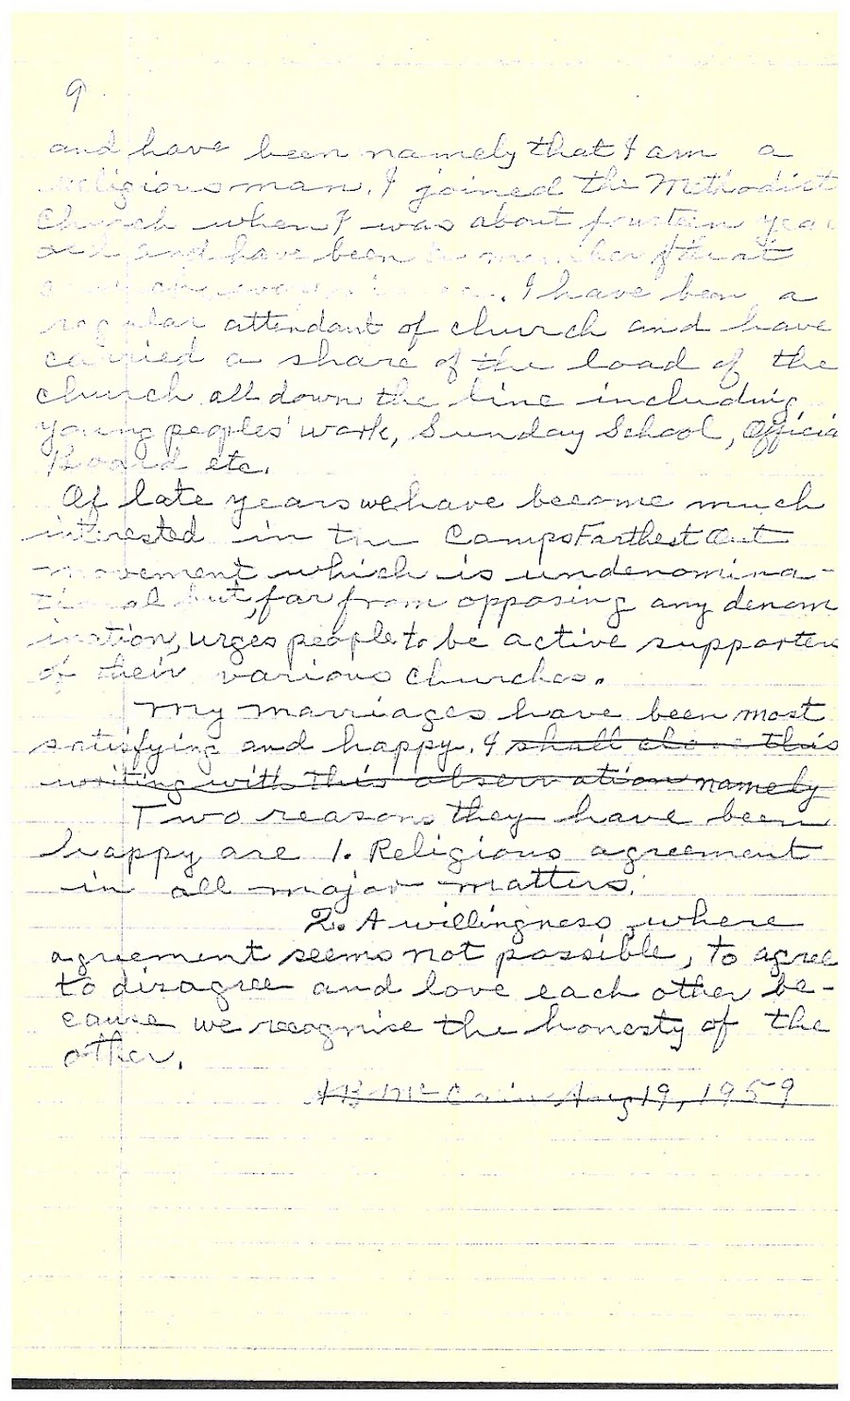 9
and have been namely that I am a
religious man. I joined the Methodist
Church when I was about fourteen year
old and have been a member of that
I have been a
regular attendant of church and have
carried a share of the load of the
church all down the line including
young peoples' work, Sunday School, Officia
Board etc.
Of late years we have become much
interested in the Camps Farthest Out
movement which is undenomina-
tional but, far from opposing any denom
ination, urges people to be active supporters
of their various churches.
My marriages have been most
satisfying and happy. I shall close this
writing with this observation namely
Two reasons they have been
happy are 1. Religious agreement
in all major matters.
2. A willingness, where
agreement seems not possible, to agree
to disagree and love each other be-
cause we recognise the honesty of the
other.
Aug 19, 1959